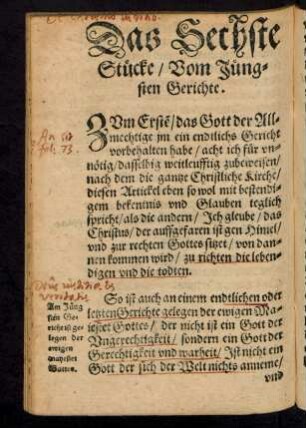 Das Sechste
Stücke / Vom Jüng-
sten Gerichte.
ZVm Erste / das Gott der All-
mechtige jm ein endtlichs Gericht
vorbehalten habe / acht ich für vn-
nötig / dasselbig weitleufftig zubeweisen /
nach dem die gantze Christliche Kirche /
diesen Artickel eben so wol mit bestendi-
gem bekentnis vnd Glauben teglich
spricht / als die andern / Ich gleube / das
Christus / der auffgefaren ist gen Himel /
vnd zur rechten Gottes sitzt / von dan-
nen kommen wird / zu richten die leben-
digen vnd die todten.
So ist auch an einem endtlichen oder
letzten Gerichte gelegen der ewigen Ma-
iestet Gottes / der nicht ist ein Gott der
Vngerechtigkeit / sondern ein Gott der
Gerechtigkeit vnd warheit / Ist nicht ein
Gott der sich der Welt nichts anneme /
vnd
Am Jüng
sten Ge-
richte ist ge-
legen der
ewigen
maiestet
Gottes.